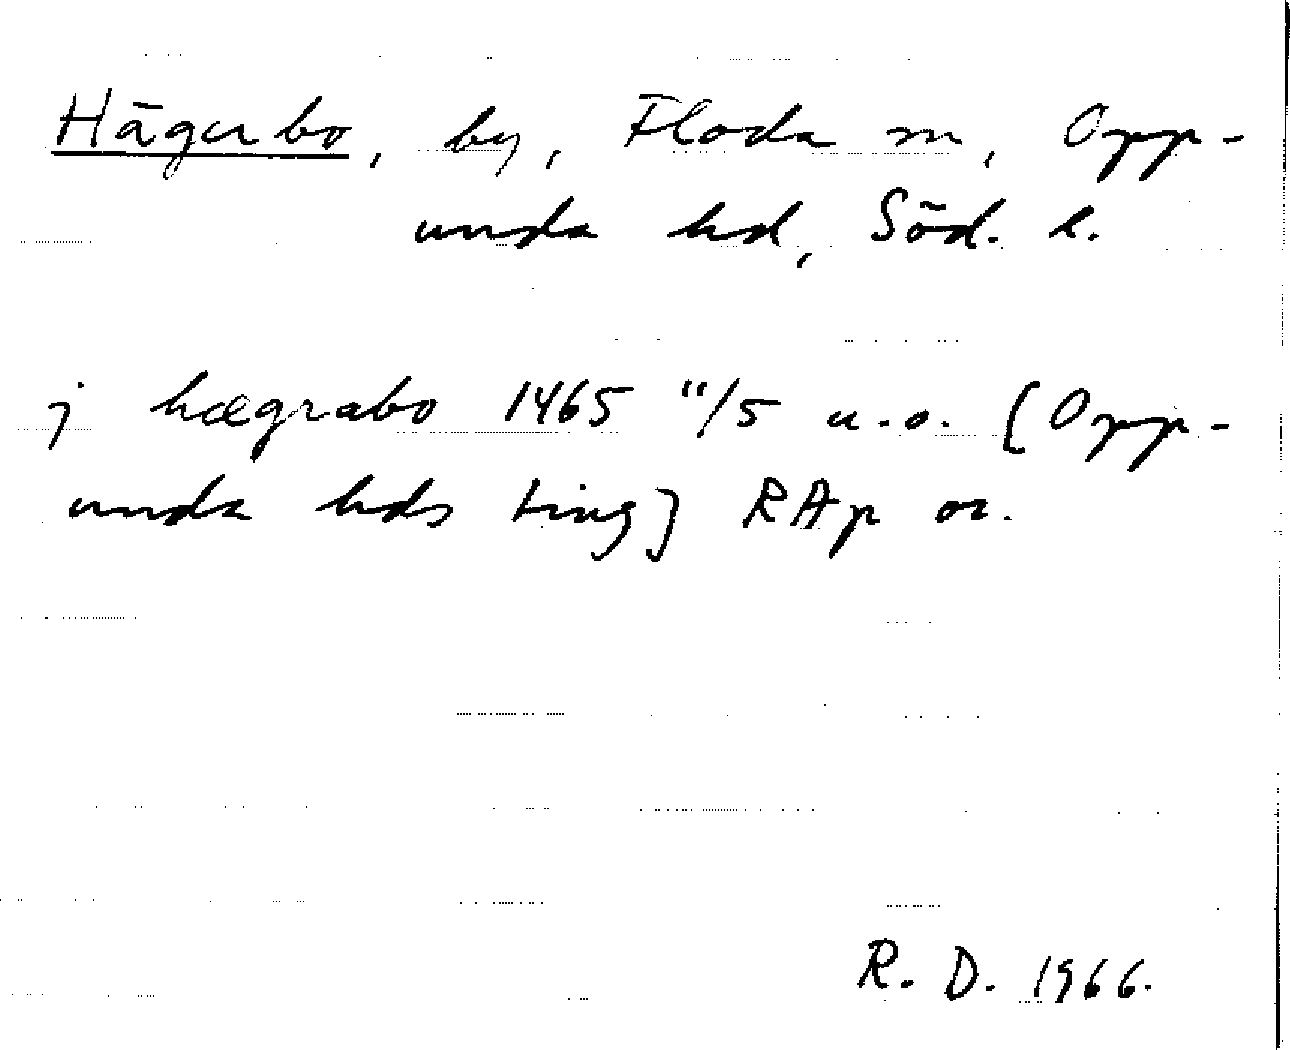 Hägerbo, by, Floda sn, Opp-
unda hd, Söd. l.
j hægrabo 1465 11/5 u.o. (Opp-
unda hds ting) RAp or.
R. D. 1966.